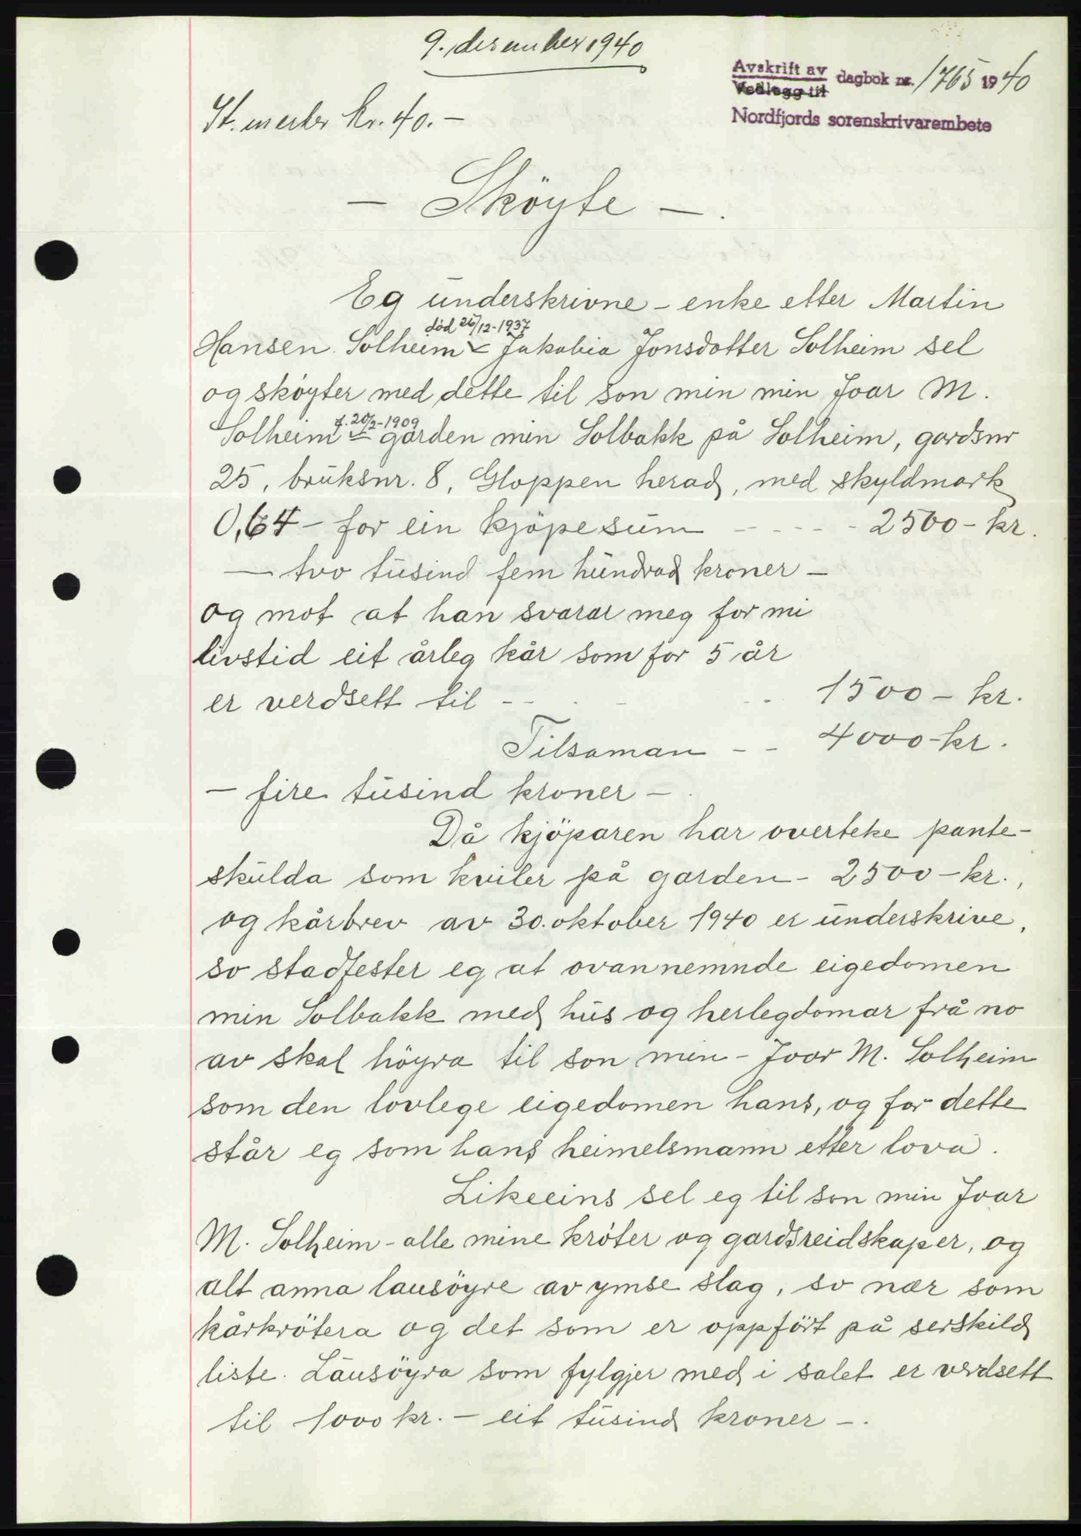 9. desember 1940
Avskrift av
Vedlegg til
dagbok nr. 1765 1940
Nordfjords sorenskrivarembete
St. merker kr. 40.-
- Sköyte -.
Eg underskrivne - enke etter Martin
død 26/12-1937
Hansen Solheim x Jakobia Jonsdotter Solheim sel
og sköyter med dette til son min min Ivar M.
f. 20/2-1909
Solheim - garden min Solbakk på Solheim, gardsnr
25, bruksnr. 8, Gloppen herad, med skyldmark
0,64 - for ein kjöpesum - - - - - 2500 - kr.
- tvo tusind fem hundrad kroner -
og mot at han svarar meg for mi
livstid eit årleg kår som for 5 år
er verdsett til - - - - - 1500 - kr.
Tilsaman - - 4000 - kr.
- fire tusind kroner -
Då kjöparen har overteke pante-
skulda som kviler på garden - 2500 - kr.,
og kårbrev av 30. oktober 1940 er underskrive,
so stadfester eg at ovannemnde eigedomen
min Solbakk med hus og herlegdomar frå no
av skal höyra til son min - Ivar M. Solheim
som den lovlege eigedomen hans, og for dette
står eg som hans heimelsmann etter lova.
Likeeins sel eg til son min Ivar
M. Solheim - alle mine kröter og gardsreidskaper, og
alt anna lausöyre av ymse slag, so nær som
kårkrötera og det som er oppfört på serskild
liste. Lausöyra som fylgjer med i salet er verdsett
til 1000 kr. - eit tusind kroner -.